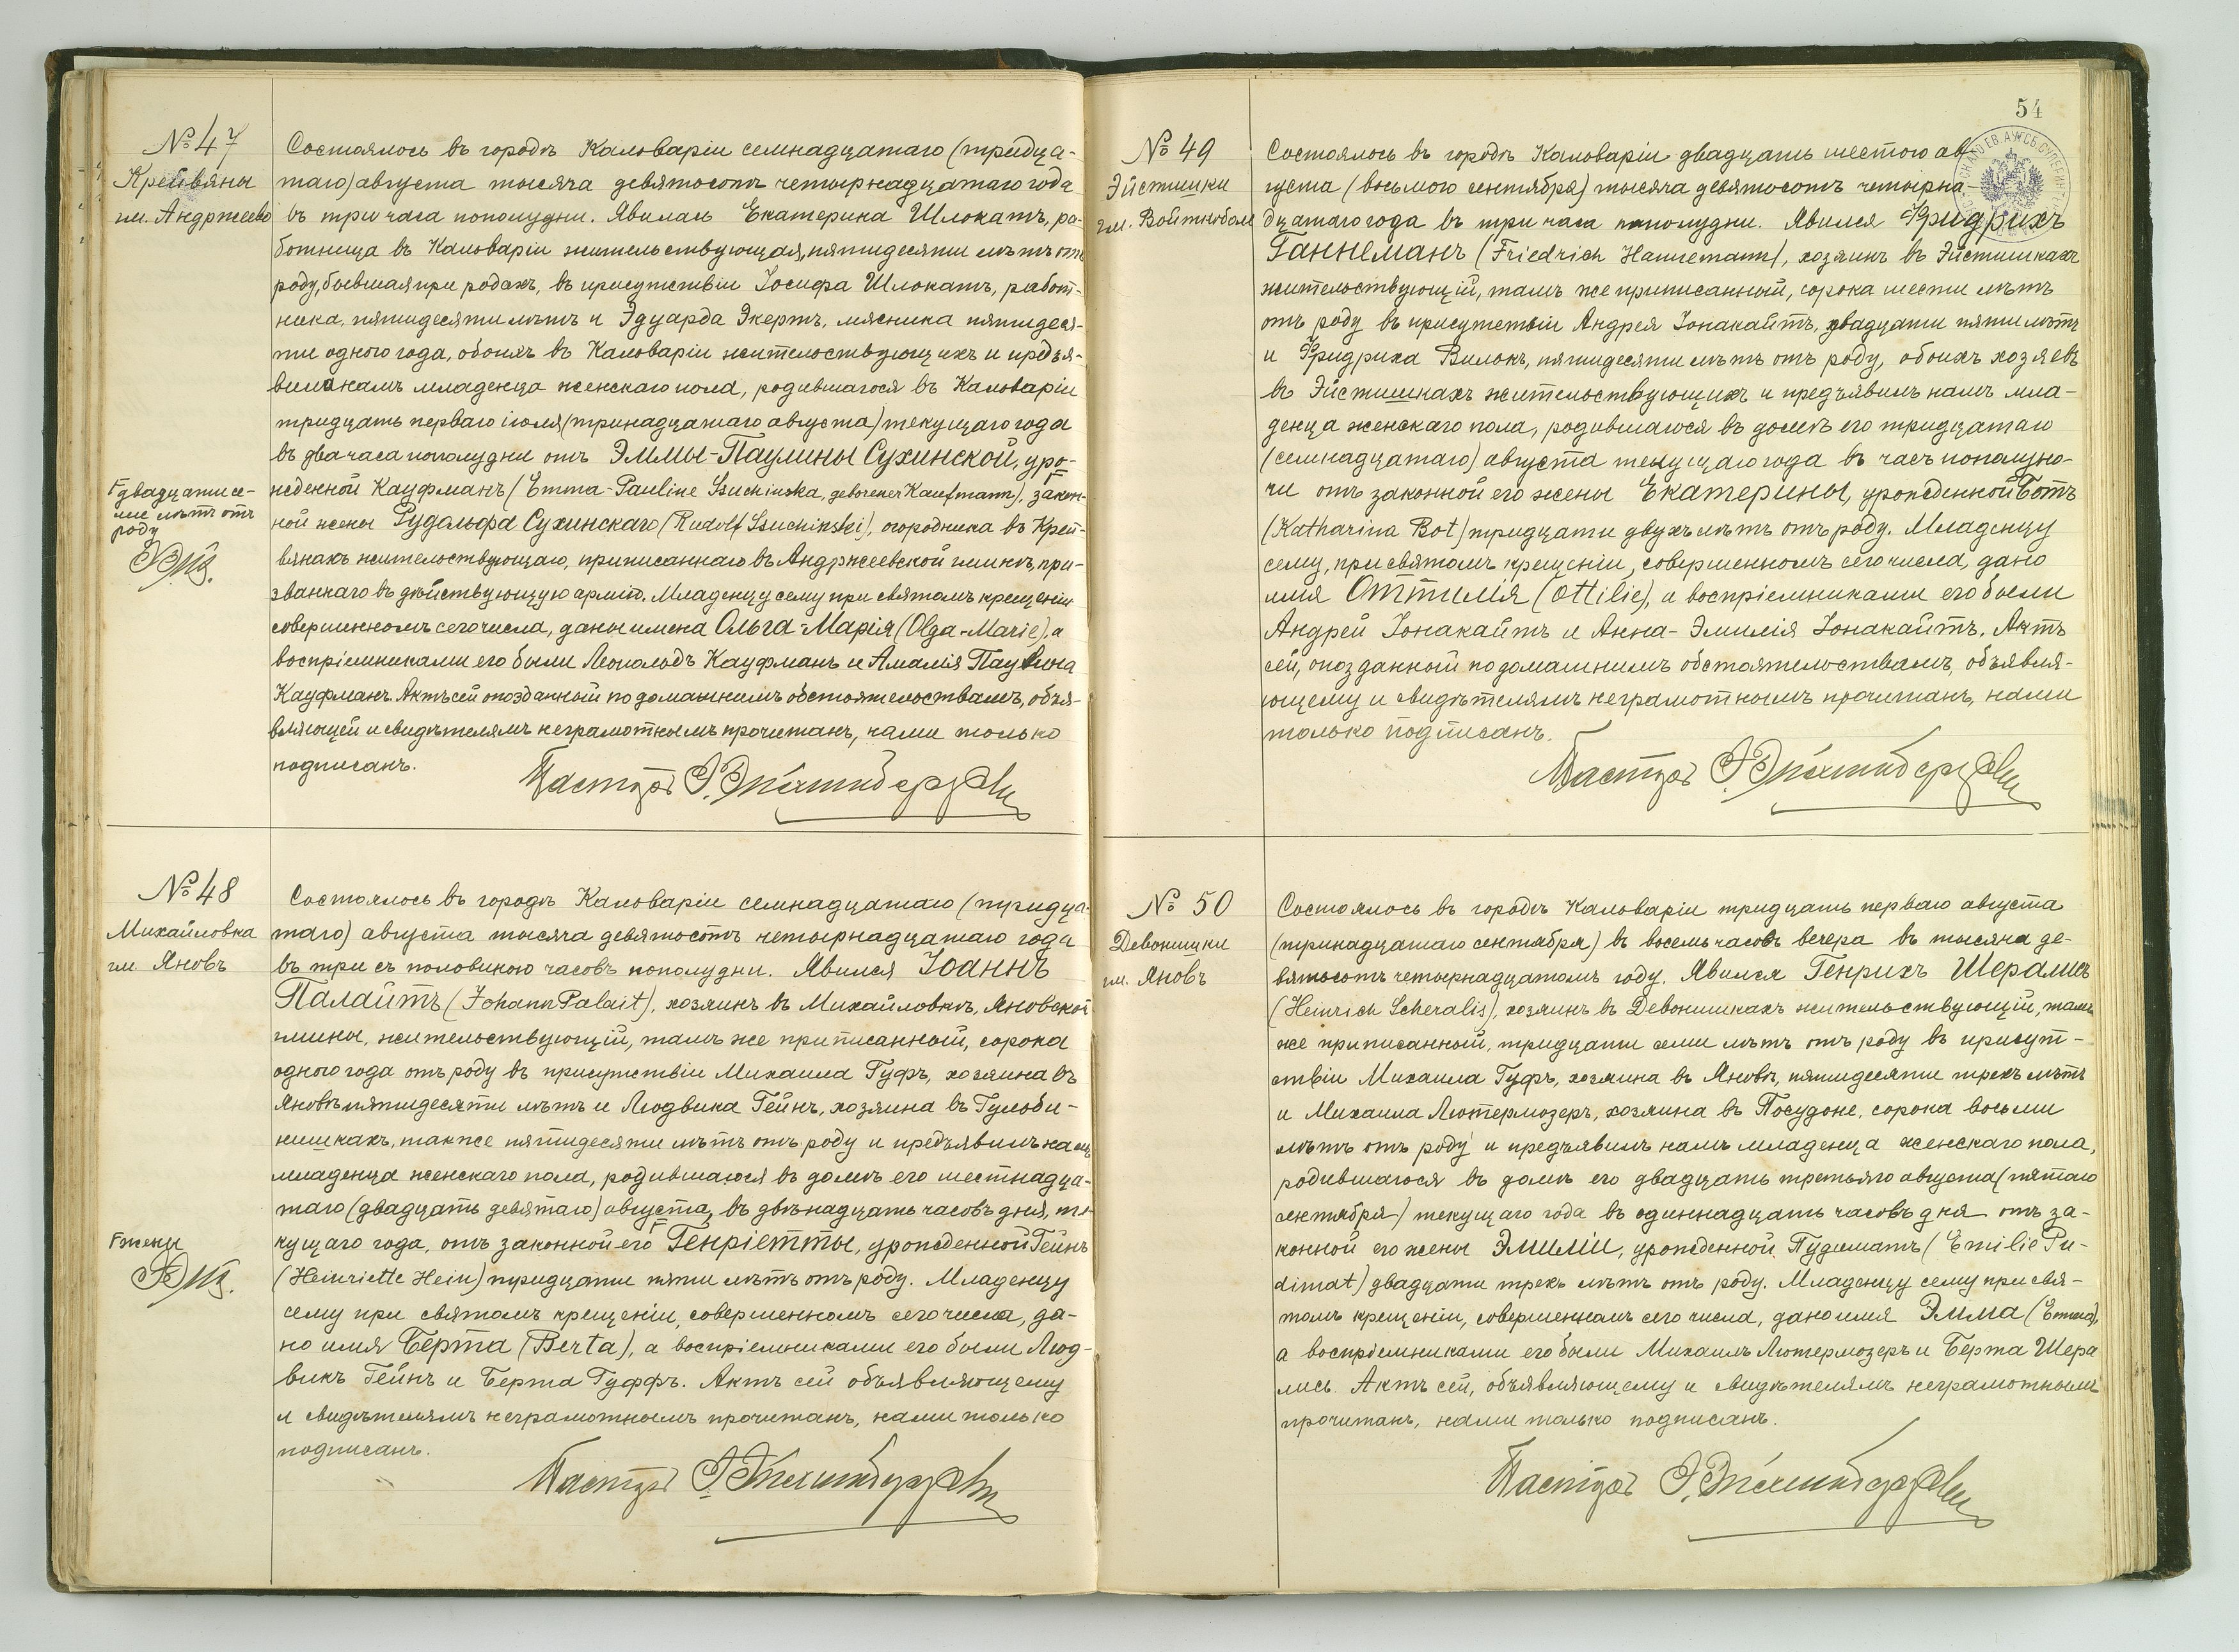 № 47
Крейвяны
гм. Андржеево
Состоялось въ городѣ Кальваріи семнадцатаго (тридца-
таго) августа тысяча девятьсотъ четырнадцатаго года
въ три часа пополудни. Явилась Екатерина Шлокатъ, ра-
ботница въ Кальваріи жительствующая, пятидесяти лѣтъ отъ
роду, бывшая при родахъ, въ присутствіи Іосифа Шлокатъ, работ-
ника, пятидесяти лѣтъ и Эдуарда Экертъ, мясника пятидеся-
ти одного года, обоихъ въ Кальваріи жительствующихъ и предъя-
вила намъ младенца женскаго пола, родившагося въ Кальваріи
тридцать перваго іюля (тринадцатаго августа) текущаго года
въ два часа пополудни отъ Эммы-Паулины Сухинской, уро-
жденной Кауфманъ (Emma-Pauline Suchinska, geborener Kaufmann), закон-
ной жены Рудольфа Сухинскаго (Rudolf Suchinski), огородника въ Крей-
вянахъ жительствующаго, приписаннаго въ Андржеевской гминѣ, при-
званнаго въ дѣйствующую армію. Младенцу сему при святомъ крещеніи
совершенномъ сего числа, даны имена Ольга-Марія (Olga-Marie), а
воспріемниками его были Леопольдъ Кауфманъ и Амалія Паулина
Кауфманъ. Актъ сей опозданный по домашнимъ обстоятельствамъ, объя-
вляющей и свидѣтелямъ неграмотнымъ прочитанъ, нами только
подписанъ.
двадцати се-
ми лѣтъ отъ
роду
Пасторъ
№ 48
Михайловка
гм. Яновъ
Состоялось въ городѣ Кальваріи семнадцатаго (тридца-
таго) августа тысяча девятьсотъ четырнадцатаго года
въ три съ половиною часовъ пополудни. Явился Іоаннъ
Палайтъ (Johann Palait), хозяинъ въ Михайловкѣ, Яновской
гмины, жительствующій, тамъ же приписанный, сорока
одного года отъ роду въ присутствіи Михаила Гуфъ, хозяина въ
Яновѣ пятидесяти лѣтъ и Людвика Гейнъ, хозяина въ Гульби-
нишкахъ, также пятидесяти лѣтъ отъ роду и предъявилъ намъ
младенца женскаго пола, родившагося въ домѣ его шестнадца-
таго (двадцать девятаго) августа, въ двѣнадцать часовъ дня, те-
кущаго года, отъ законной его Генріетты, урожденной Гейнъ
(Heinriette Hein) тридцати пяти лѣтъ отъ роду. Младенцу
сему при святомъ крещеніи, совершенномъ сего числа, да-
но имя Берта (Berta), а воспріемниками его были Люд-
викъ Гейнъ и Берта Гуффъ. Актъ сей объявляющему
и свидѣтелямъ неграмотнымъ прочитанъ, нами только
подписанъ.
жены
Пасторъ
54
№ 49
Эйстишки
гм. Войткобол
Состоялось въ городѣ Кальваріи двадцать шестого ав-
густа (восьмого сентября) тысяча девятьсотъ четырна-
дцатаго года въ три часа пополудни. Явился Фридрихъ
Ганнеманъ (Friedrich Hannemann), хозяинъ въ Эйстишкахъ
жительствующій, тамъ же приписанный, сорока шести лѣтъ
отъ роду въ присутствіи Андрея Іонакайтъ, двадцати пяти лѣтъ
и Фридриха Вилокъ, пятидесяти лѣтъ отъ роду, обоихъ хозяевъ
въ Эйстишкахъ жительствующихъ и предъявилъ намъ мла-
денца женскаго пола, родившагося въ домѣ его тридцатаго
(семнадцатаго) августа текущаго года въ часъ пополуно-
чи отъ законной его жены Екатерины, урожденной Ботъ
(Katharina Bot) тридцати двухъ лѣтъ отъ роду. Младенцу
сему, при святомъ крещеніи, совершенномъ сего числа, дано
имя Оттилія (Ottilie), и воспріемниками его были
Андрей Іонакайтъ и Анна-Эмилія Іонакайтъ. Актъ
сей, опозданный по домашнимъ обстоятельствамъ, объявля-
ющему и свидѣтелямъ неграмотнымъ прочитанъ, нами
только подписанъ.
Пасторъ
№ 50
Девонишки
гм. Яновъ
Состоялось въ городѣ Кальваріи тридцать перваго августа
(тринадцатаго сентября) въ восемь часовъ вечера въ тысяча де-
вятьсотъ четырнадцатомъ году. Явился Генрихъ Шералисъ
(Heinrich Scheralis), хозяинъ въ Девонишкахъ жительствующій, тамъ
же приписанный, тридцати семи лѣтъ отъ роду въ присут-
ствіи Михаила Гуфъ, хозяина въ Яновѣ, пятидесяти трехъ лѣтъ
и Михаила Лютермозеръ, хозяина въ Посудоне, сорока восьми
лѣтъ отъ роду и предъявилъ намъ младенца женскаго пола,
родившагося въ домѣ его двадцать третьяго августа (пятаго
сентября) текущаго года въ одиннадцать часовъ дня отъ за-
конной его жены Эмиліи, урожденной Пудиматъ (Emilie Pu-
dimat) двадцати трехъ лѣтъ отъ роду. Младенцу сему при свя-
томъ крещеніи, совершенномъ сего числа, дано имя Эмма (Emma),
а воспріемниками его были Михаилъ Лютермозеръ и Берта Шера
лисъ. Актъ сей, объявляющему и свидѣтелямъ неграмотнымъ
прочитанъ, нами только подписанъ.
Пасторъ